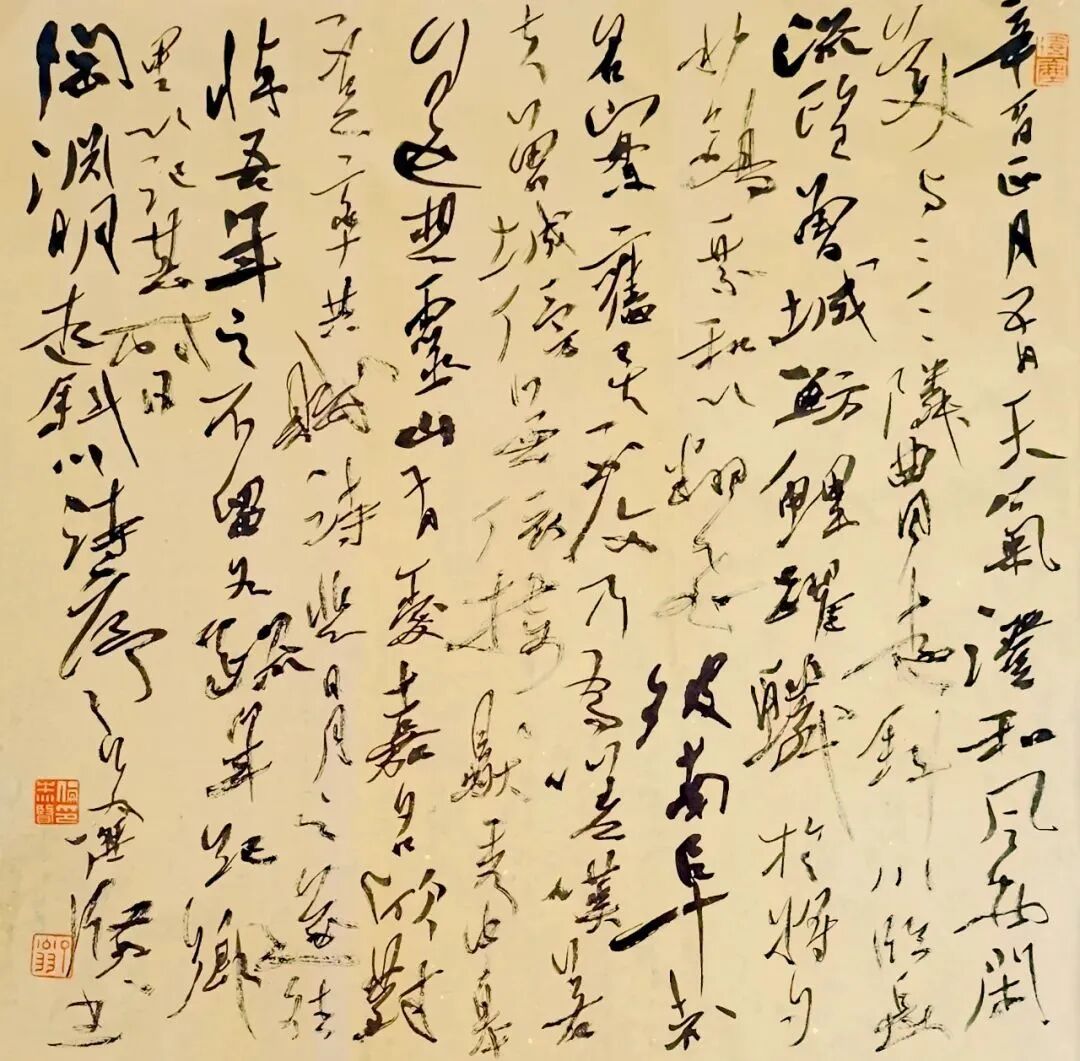 辛酉正月五日天氣澄和風物閑
美与二三隣曲同遊斜川臨長
流望曾城魴鯉躍鱗於將夕
水鷗乘和以翻飛彼南阜者
名實舊矣不復乃為嗟嘆若
夫曾城傍無依接獨秀中皋
遥想靈山有愛嘉名欣對
不足率共賦詩悲日月之遂往
悼吾年之不留各疏年紀鄉
里以記其時日
陶淵明遊斜川詩序 書